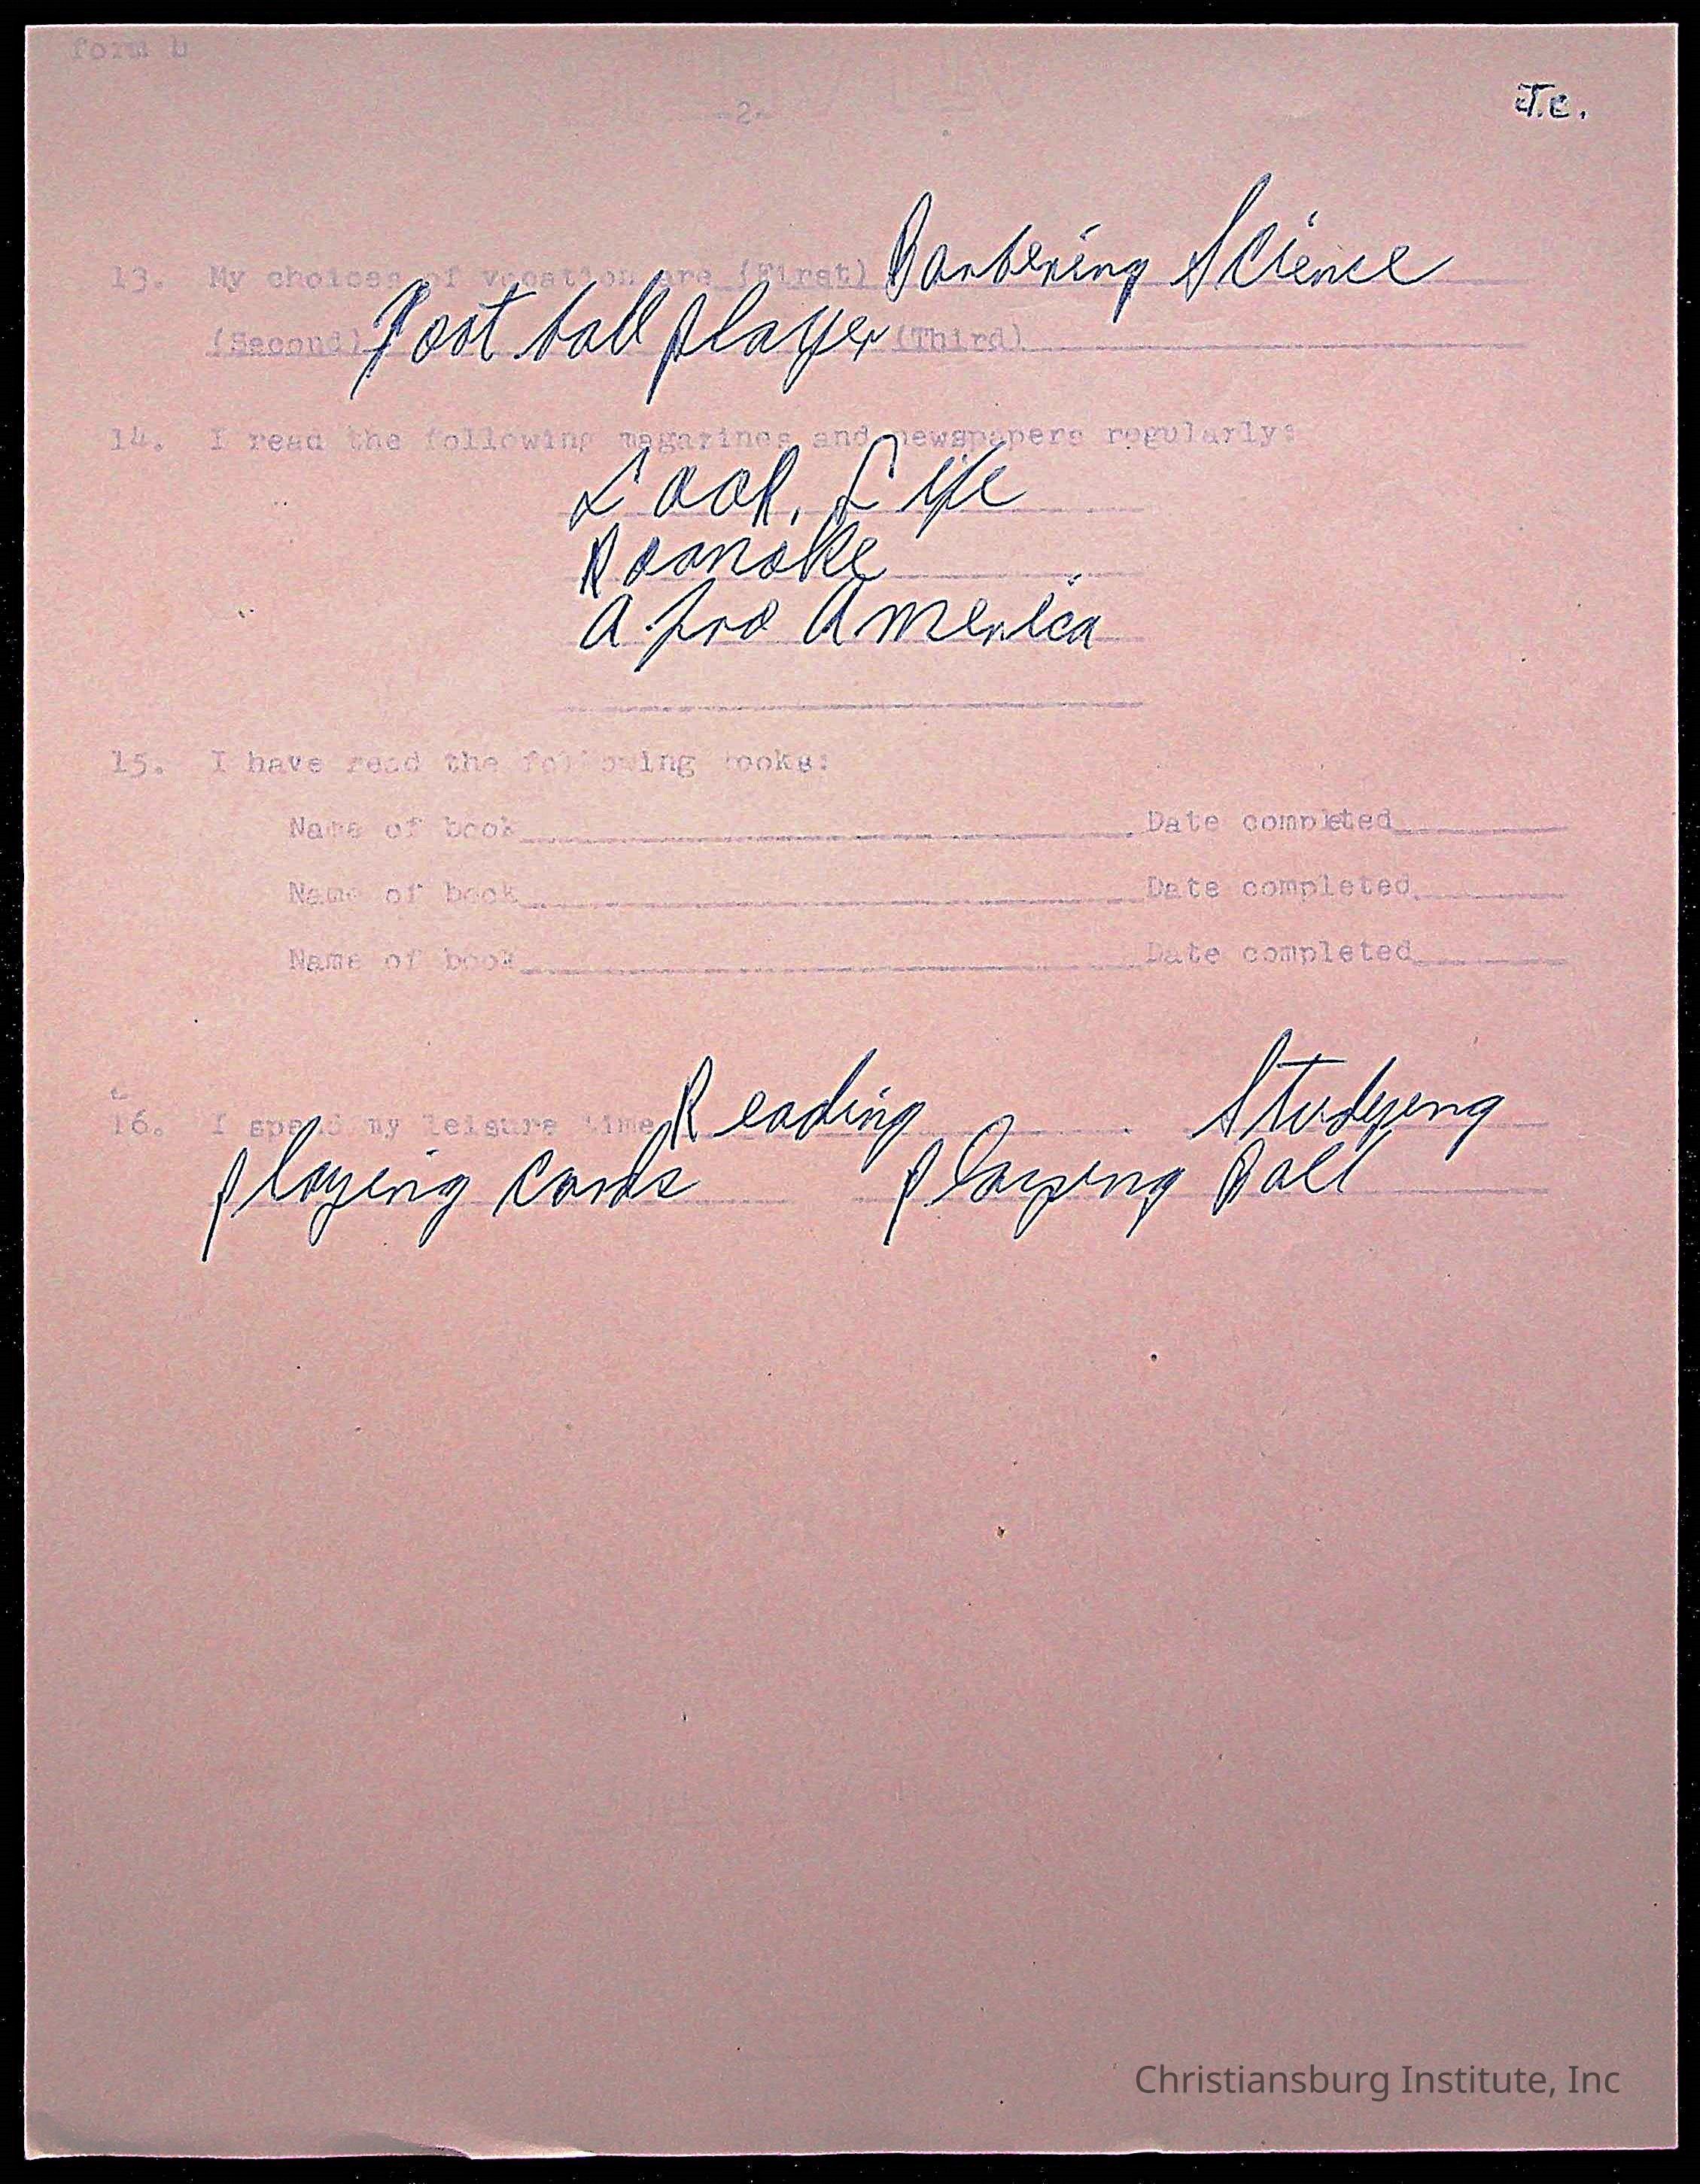 form b
-2-
J.C.
13. My choices of vocation are (First) Barbering Science
(Second) Foot ball player (Third)
14. I read the following magazines and newspapers regularly:
Look, Life
Roanoke
Afro America
15. I have read the following books:
Name of book Date completed
Name of book Date completed
Name of book Date completed
16. I spend my leisure time Reading Studying
playing cards playing Ball
Christiansburg Institute, Inc